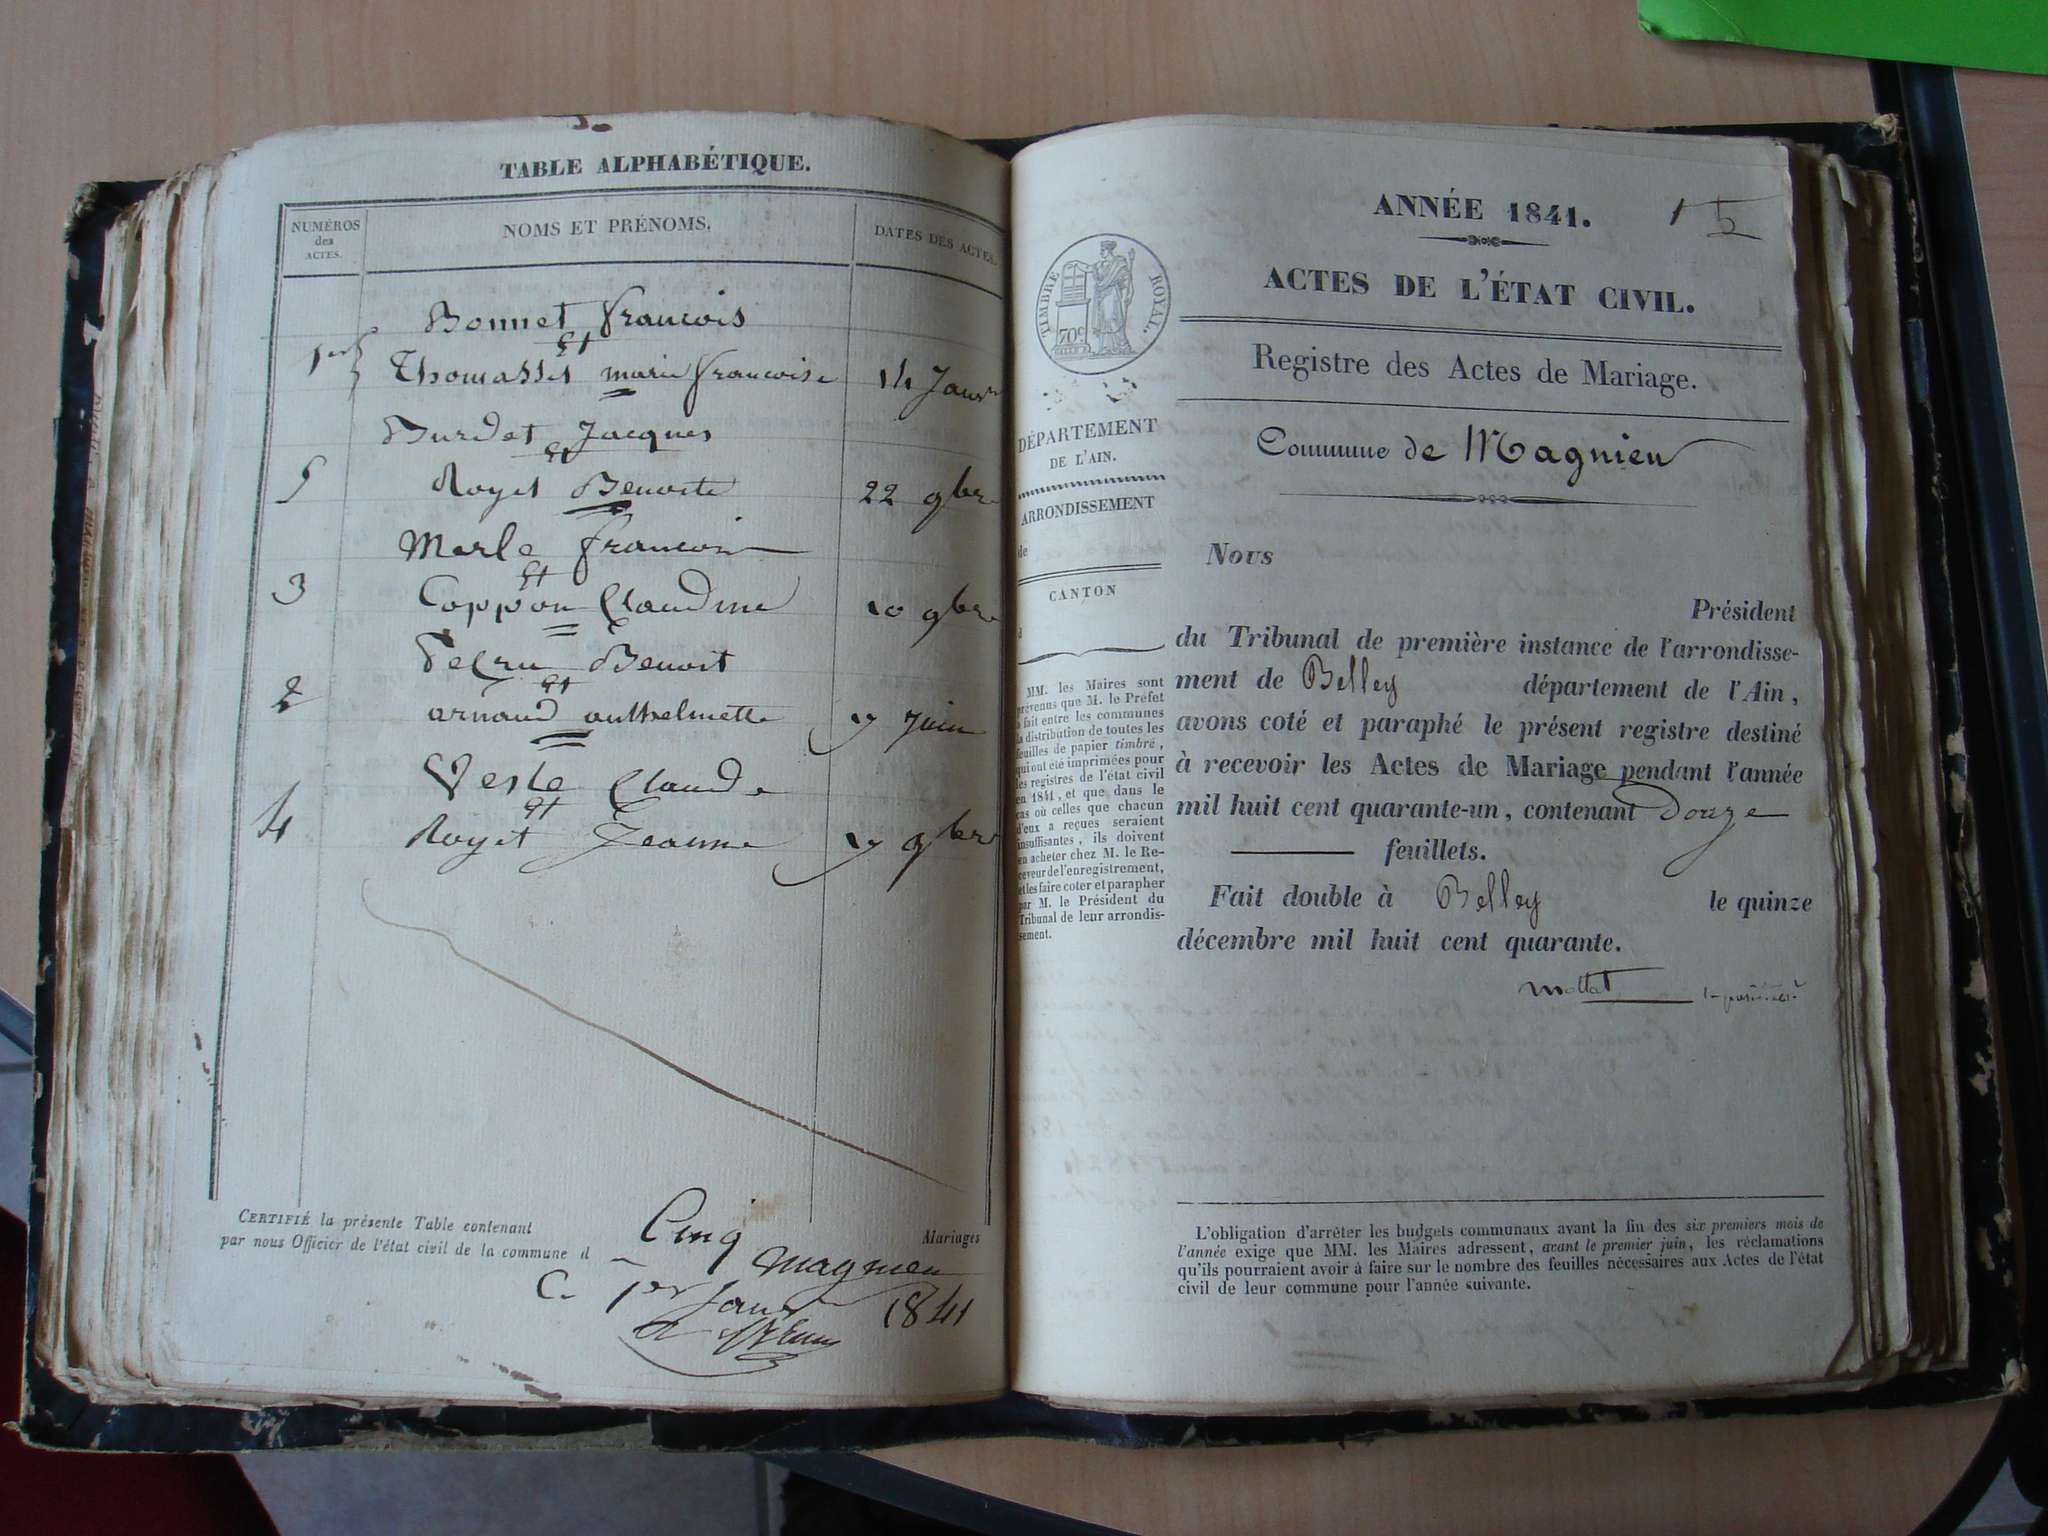 TABLE ALPHABÉTIQUE.
NUMÉROS des ACTES.
NOMS ET PRÉNOMS.
DATES DES ACTES.
Bonnet francois
et
1er Thomasset marie francoise 14 Janvr
Burdet Jacques
et
5 Royet Benoite 22 9bre
Merle francois
et
3 Coppon Claudine 10 9bre
Benoit
et
2 arnaud anthelmette 17 Juin
Veste Claude
et
4 Royet Jeanne 17 9bre
CERTIFIÉ la présente Table contenant Cinq Mariages
par nous Officier de l'état civil de la commune d magnieu
C. 1er Janvr 1841
ANNÉE 1841.
1
5
ACTES DE L'ÉTAT CIVIL.
TIMBRE ROYAL.
70c
Registre des Actes de Mariage.
Commune de Magnieu
DÉPARTEMENT
DE L'AIN.
ARRONDISSEMENT
de
CANTON
d
MM. les Maires sont
prévenus que M. le Préfet
a fait entre les communes
la distribution de toutes les
feuilles de papier timbré,
qui ont été imprimées pour
les registres de l'état civil
en 1841, et que dans le
cas où celles que chacun
d'eux a reçues seraient
insuffisantes, ils doivent
en acheter chez M. le Re-
ceveur de l'enregistrement,
et les faire coter et parapher
par M. le Président du
Tribunal de leur arrondis-
sement.
Nous
Président
du Tribunal de première instance de l'arrondisse-
ment de Belley département de l'Ain,
avons coté et paraphé le présent registre destiné
à recevoir les Actes de Mariage pendant l'année
mil huit cent quarante-un, contenant Douze
feuillets.
Fait double à Belley le quinze
décembre mil huit cent quarante.
mottat
L'obligation d'arrêter les budgets communaux avant la fin des six premiers mois de
l'année exige que MM. les Maires adressent, avant le premier juin, les réclamations
qu'ils pourraient avoir à faire sur le nombre des feuilles nécessaires aux Actes de l'état
civil de leur commune pour l'année suivante.